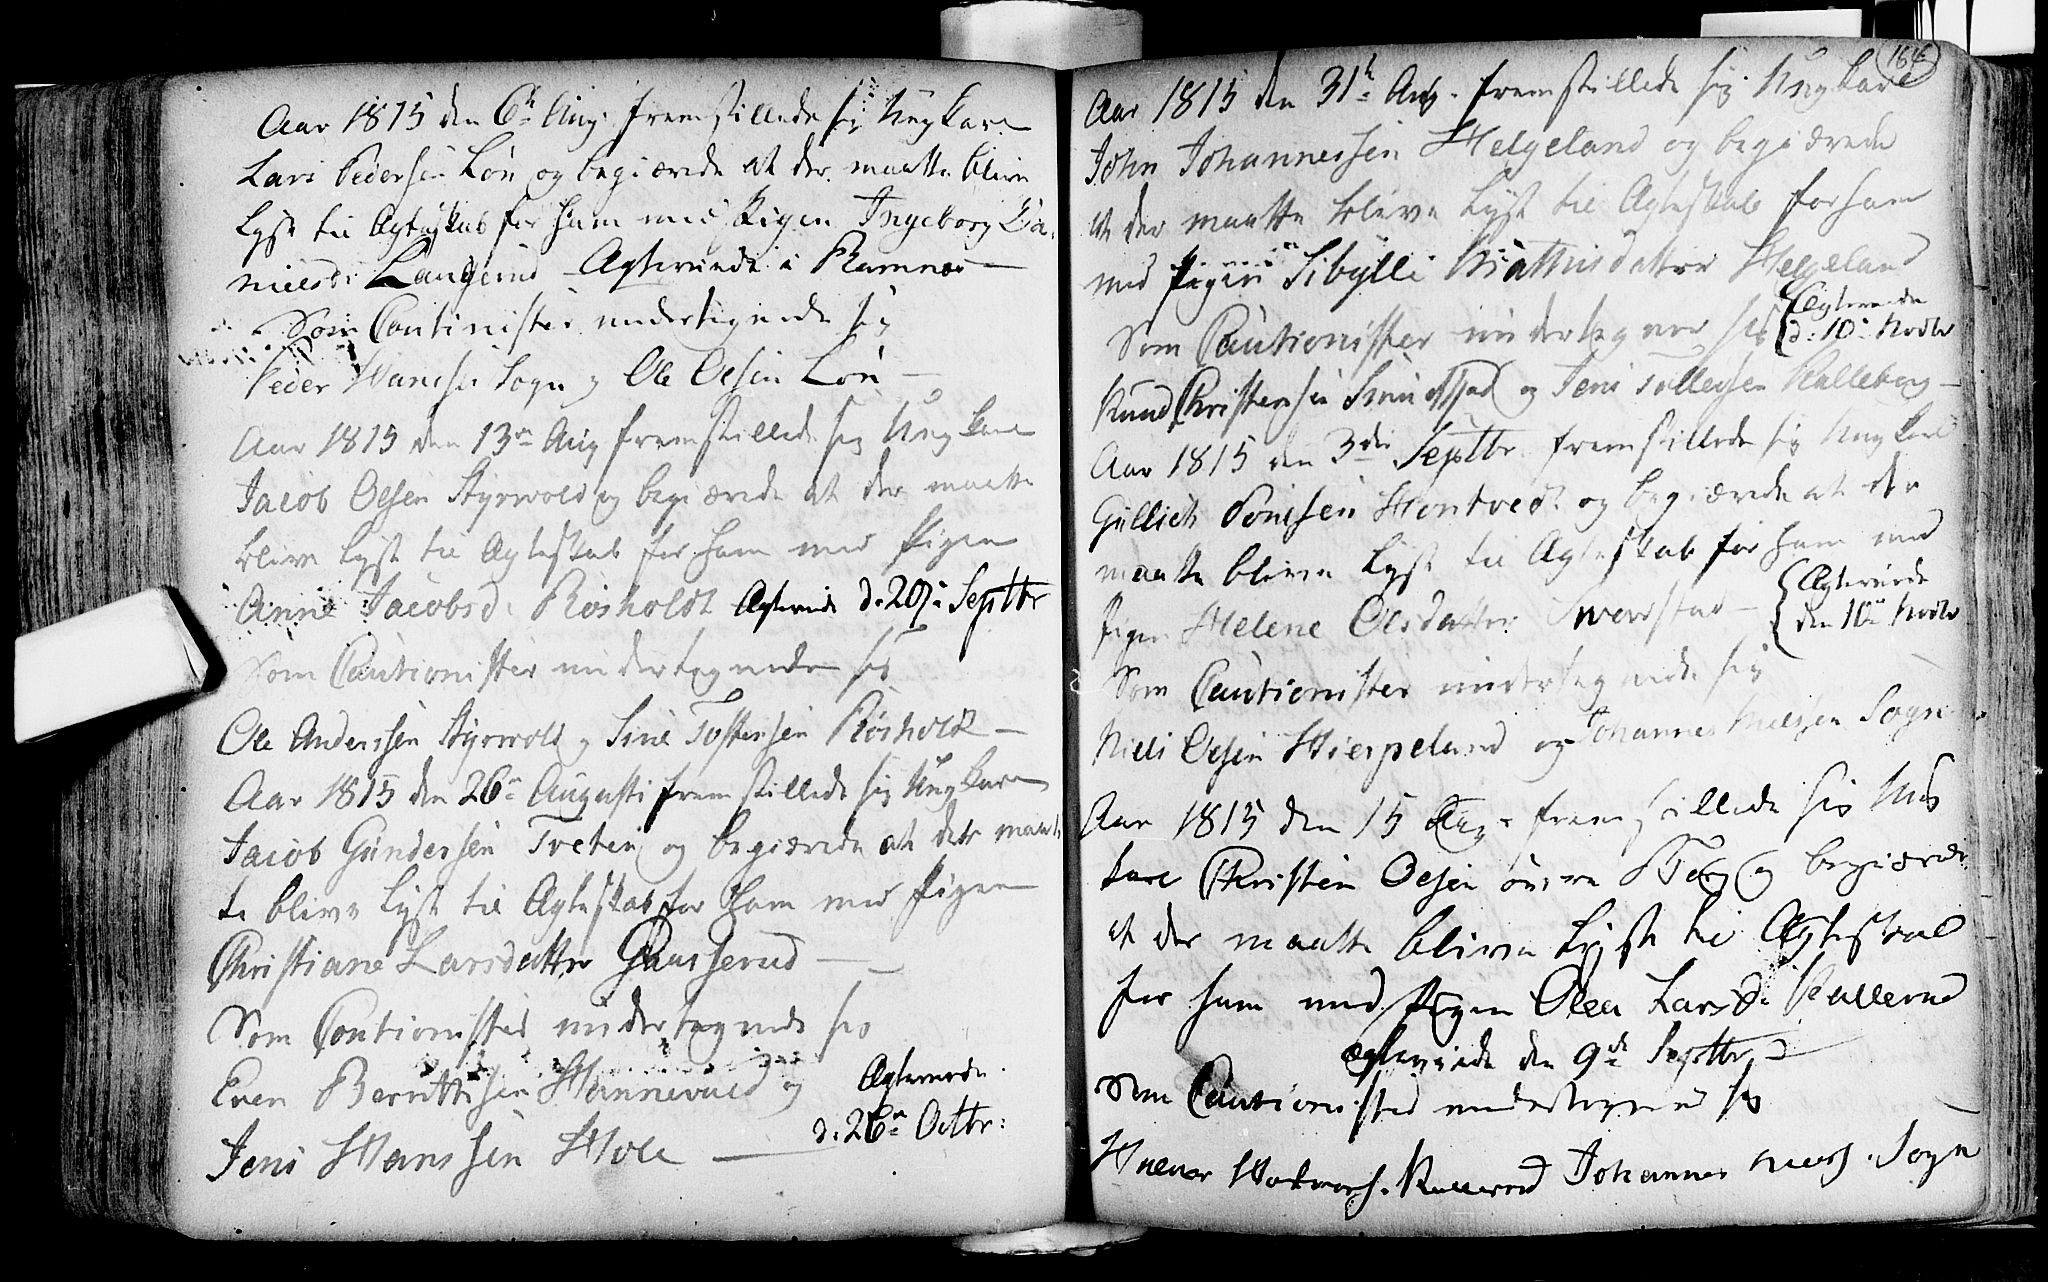 Aar 1815 den 6te Aug: fremstillede sig Ungkarl
Lars Pedersen Løn og begiærede at der maatte blive
lyst til Ægteskab for ham med Pigen Ingeborg Da-
nielsd: Langerud Ægteviede i Ramnæs
Som Cautinister undertegnede sig
Peder Hanssen Sogn og Ole Olsen Løn
Aar 1815 den 13de Aug fremstillede sig Ungkarl
Jacob Olsen Styrvold og begiærede at der maatte
blive lyst til Ægteskab for ham med Pigen
Anne Jacobsd: Røsholdt Ægteviede d: 20de Septbr
Som Cautionister undertegnede sig
Ole Anderssen Styrvold og Tostensen Røsholdt
Aar 1815 den 26de Augusti fremstillede sig Ungkarl
Jacob Gundersen Tveten og begiærede at der maat-
te blive lyst til Ægteskab for ham med Pigen
Christiane Larsdatter
Som Cautionisted undertegnede sig
Even Berntsen Hannevold og Ægteviede
Jens Hanssen Hole d: 26de Octbr:
164
Aar 1815 den 31te Aug. fremstillede sig Ungkarl
John Johannessen Helgeland og begiærede
at der maatte blive lyst til Ægteskab for ham
med Pigen Sibylle Mathisdatter Helgeland
Som Cautionister undertegner sig Ægteviede d: 10de Novbr
Knud Christensen og Jens Tollevsen Kalleberg
Aar 1815 den 3die Septbr fremstillede sig Ungkarl
Gullich Hontvedt og begiærede at der
maatte blive lyst til Ægteskab for ham med
Pigen Helene Olsdatter Sverstad Ægteviede den 10de Novbr
Som Cautionister undertegnede sig
Niels Olsen Hierpeland og Johannes Nielsen Sogn
Aar 1815 den 15 Aug: fremstillede sig Ung
karl Christen Olsen øvre Berg og begiærede
at der maatte blive lyst til Ægteskab
for ham med Pigen Olea Larsd:
Ægteviede den 9de Septbr
Som Cautionisted undertegnede sig
Johannes Niels. Sogn